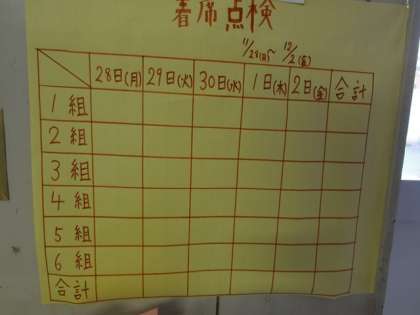 着席点検
11/28(月)~ 12/2(金)
28日(月) 29日(火) 30日(水) 1日(木) 2日(金) 合計
1組
2組
3組
4組
5組
6組
合計